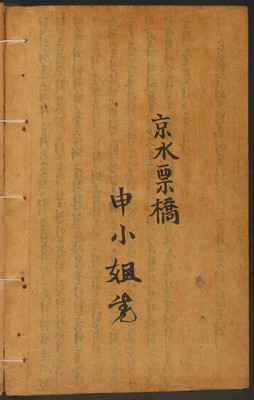 京水票橋
申小姐宅